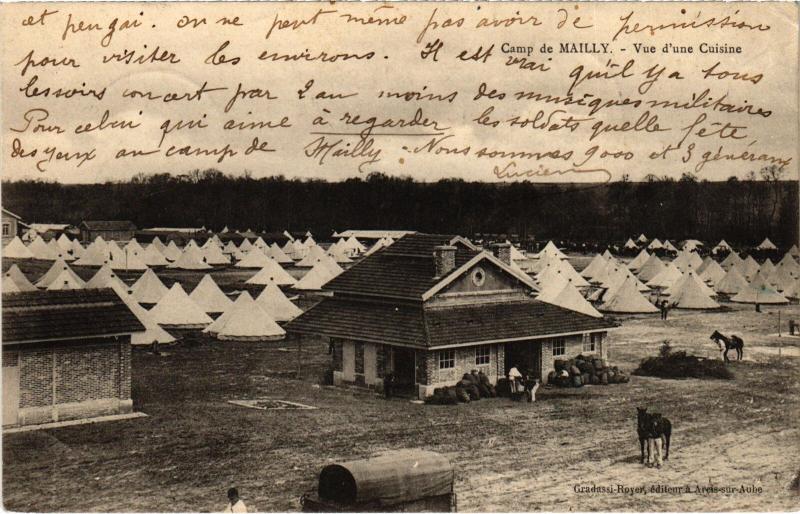 et peu gai. on ne peut même pas avoir de permission
pour visiter les environs. Il est vrai qu'il y a tous
les soirs concert par 2 au moins des musiques militaires
Pour celui qui aime à regarder les soldats quelle fête
des yeux au camp de Mailly. Nous sommes 9000 et 3 généraux
Lucien
Camp de MAILLY. - Vue d'une Cuisine
Gradassi-Royer, éditeur à Arcis-sur-Aube